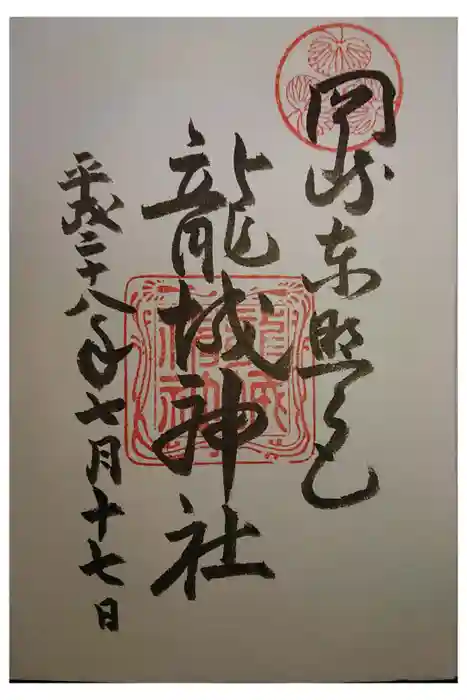 岡崎東照宮
龍城神社
平成二十八年七月十七日